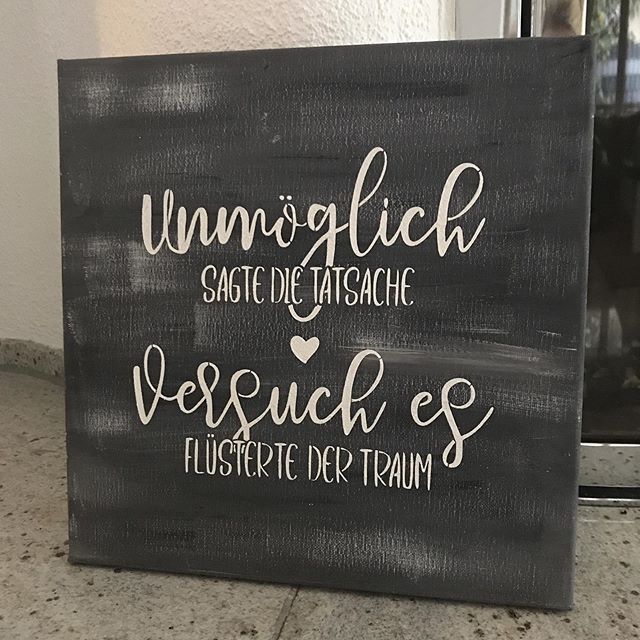 Unmöglich
SAGTE DIE TATSACHE
Versuch es
FLÜSTERTE DER TRAUM